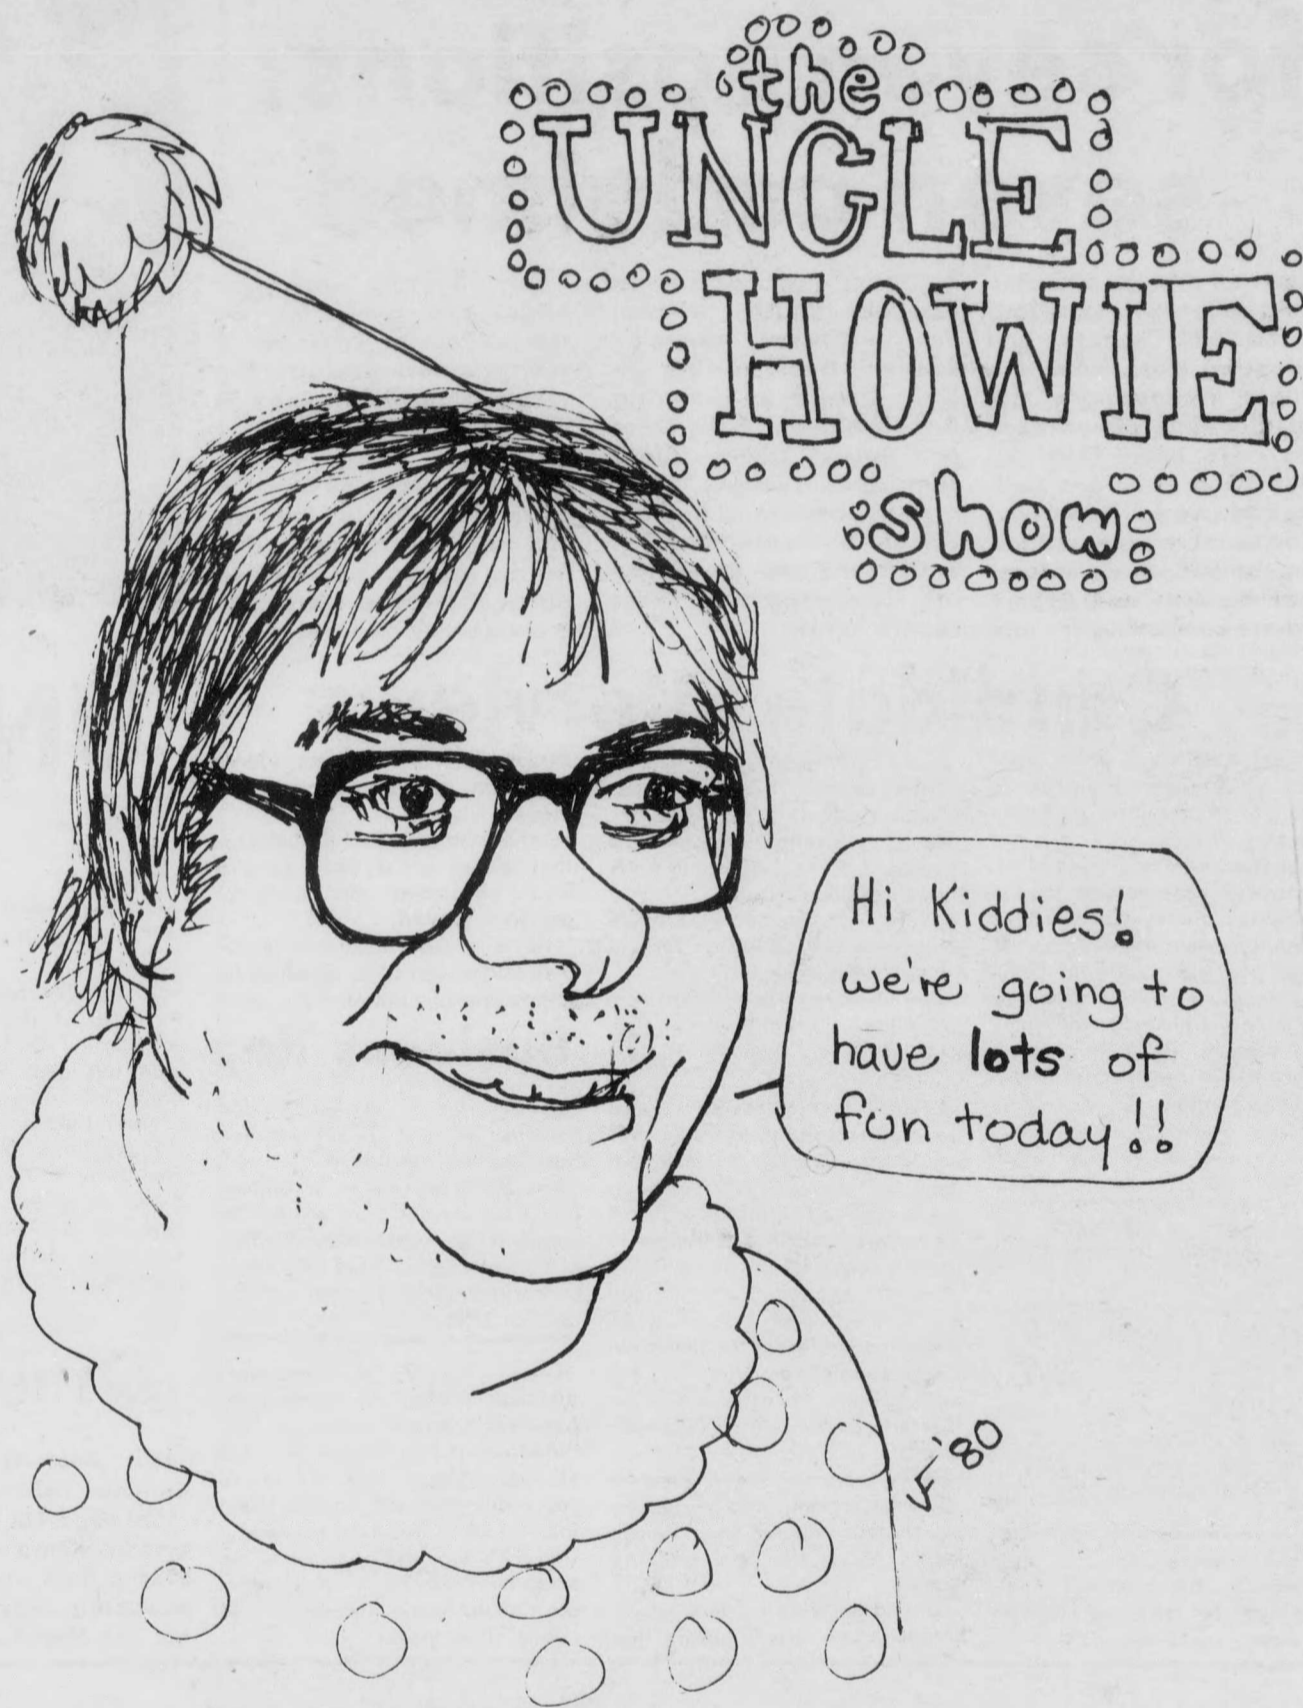 the
UNCLE
HOWIE
show
Hi Kiddies!
we're going to
have lots of
fun today!!
'80